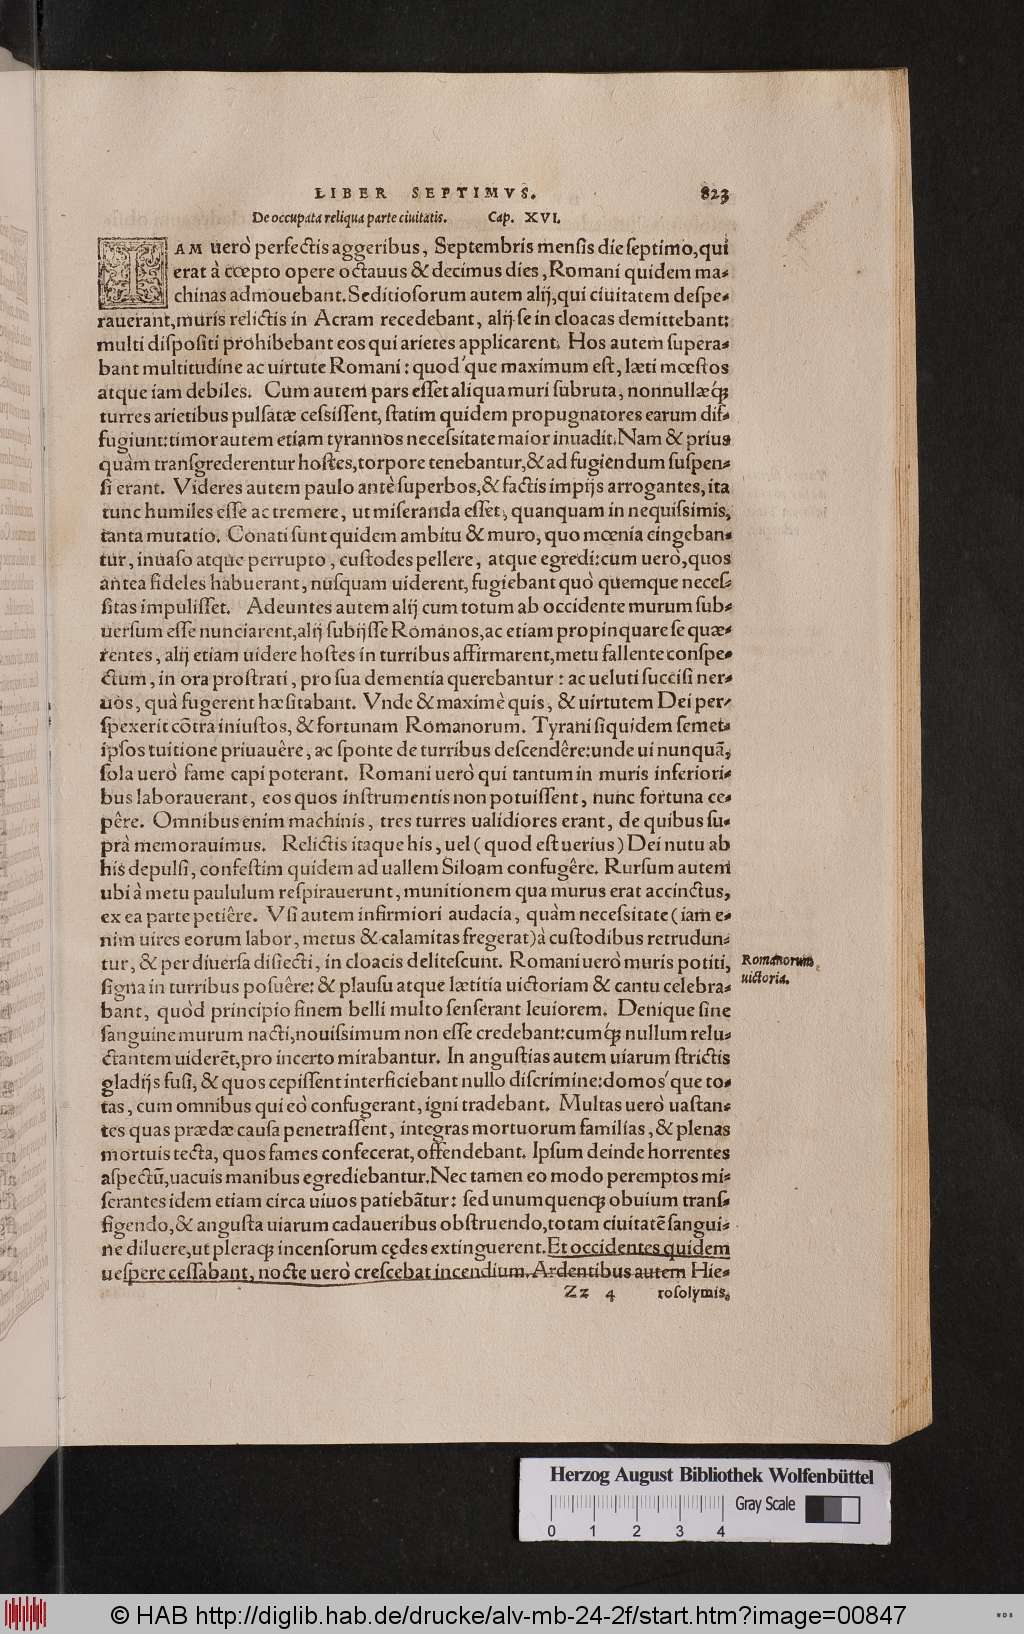 LIBER SEPTIMVS. 823
De occupata reliqua parte ciuitatis. Cap. XVI.
IAM uerò perfectis aggeribus, Septembris mensis die septimo, qui
erat à ccepto opere octauus & decimus dies, Romani quidem ma-
chinas admouebant. Seditiosorum autem alij, qui ciuitatem despe-
rauerant, muris relictis in Acram recedebant, alij se in cloacas demittebant:
multi dispositi prohibebant eos qui arietes applicarent. Hos autem supera-
bant multitudine ac uirtute Romani: quod'que maximum est, læti mœstos
atque iam debiles. Cum autem pars esset aliqua muri subruta, nonnullæq́;
turres arietibus pulsatæ cessissent, statim quidem propugnatores earum dif-
fugiunt: timor autem etiam tyrannos necessitate maior inuadit. Nam & prius
quàm transgrederentur hostes, torpore tenebantur, & ad fugiendum suspen-
si erant. Videres autem paulo antè superbos, & factis impijs arrogantes, ita
tunc humiles esse ac tremere, ut miseranda esset, quanquam in nequissimis,
tanta mutatio. Conati sunt quidem ambitu & muro, quo mœnia cingeban-
tur, inuaso atque perrupto, custodes pellere, atque egredi: cum uerò, quos
antea fideles habuerant, nusquam uiderent, fugiebant quò quemque neces-
sitas impulisset. Adeuntes autem alij cum totum ab occidente murum sub-
uersum esse nunciarent, alij subijsse Romanos, ac etiam propinquare se quæ-
rentes, alij etiam uidere hostes in turribus affirmarent, metu fallente conspe-
ctum, in ora prostrati, pro sua dementia querebantur: ac ueluti succisi ner-
uos, quà fugerent hæsitabant. Vnde & maximè quis, & uirtutem Dei per-
spexerit cõtra iniustos, & fortunam Romanorum. Tyrani siquidem semet-
ipsos tuitione priuauêre, ac sponte de turribus descendêre: unde ui nunquã,
sola uerò fame capi poterant. Romani uerò qui tantum in muris inferiori-
bus laborauerant, eos quos instrumentis non potuissent, nunc fortuna ce-
pêre. Omnibus enim machinis, tres turres ualidiores erant, de quibus su-
prà memorauimus. Relictis itaque his, uel (quod est uerius) Dei nutu ab
his depulsi, confestim quidem ad uallem Siloam confugêre. Rursum autem
ubi à metu paululum respirauerunt, munitionem qua murus erat accinctus,
ex ea parte petiêre. Vsi autem infirmiori audacia, quàm necessitate (iam e-
nim uires eorum labor, metus & calamitas fregerat) à custodibus retrudun-
tur, & per diuersa disiecti, in cloacis delitescunt. Romani uerò muris potiti,
signa in turribus posuêre: & plausu atque lætitia uictoriam & cantu celebra-
bant, quòd principio finem belli multo senserant leuiorem. Denique sine
sanguine murum nacti, nouissimum non esse credebant: cumq́; nullum relu-
ctantem uiderẽt, pro incerto mirabantur. In angustias autem uiarum strictis
gladijs fusi, & quos cepissent interficiebant nullo discrimine: domos'que to-
tas, cum omnibus qui eò confugerant, igni tradebant. Multas uerò uastan-
tes quas prædæ causa penetrassent, integras mortuorum familias, & plenas
mortuis tecta, quos fames confecerat, offendebant. Ipsum deinde horrentes
aspectũ, uacuis manibus egrediebantur. Nec tamen eo modo peremptos mi-
serantes idem etiam circa uiuos patiebãtur: sed unumquenq; obuium trans-
figendo, & angusta uiarum cadaueribus obstruendo, totam ciuitatẽ sangui-
ne diluere, ut pleraq; incensorum cędes extinguerent. Et occidentes quidem
uespere cessabant, nocte uerò crescebat incendium. Ardentibus autem Hie-
Zz 4 rosolymis,
Romanorum
uictoria.
Herzog August Bibliothek Wolfenbüttel
Gray Scale
0 1 2 3 4
© HAB http://diglib.hab.de/drucke/alv-mb-24-2f/start.htm?image=00847